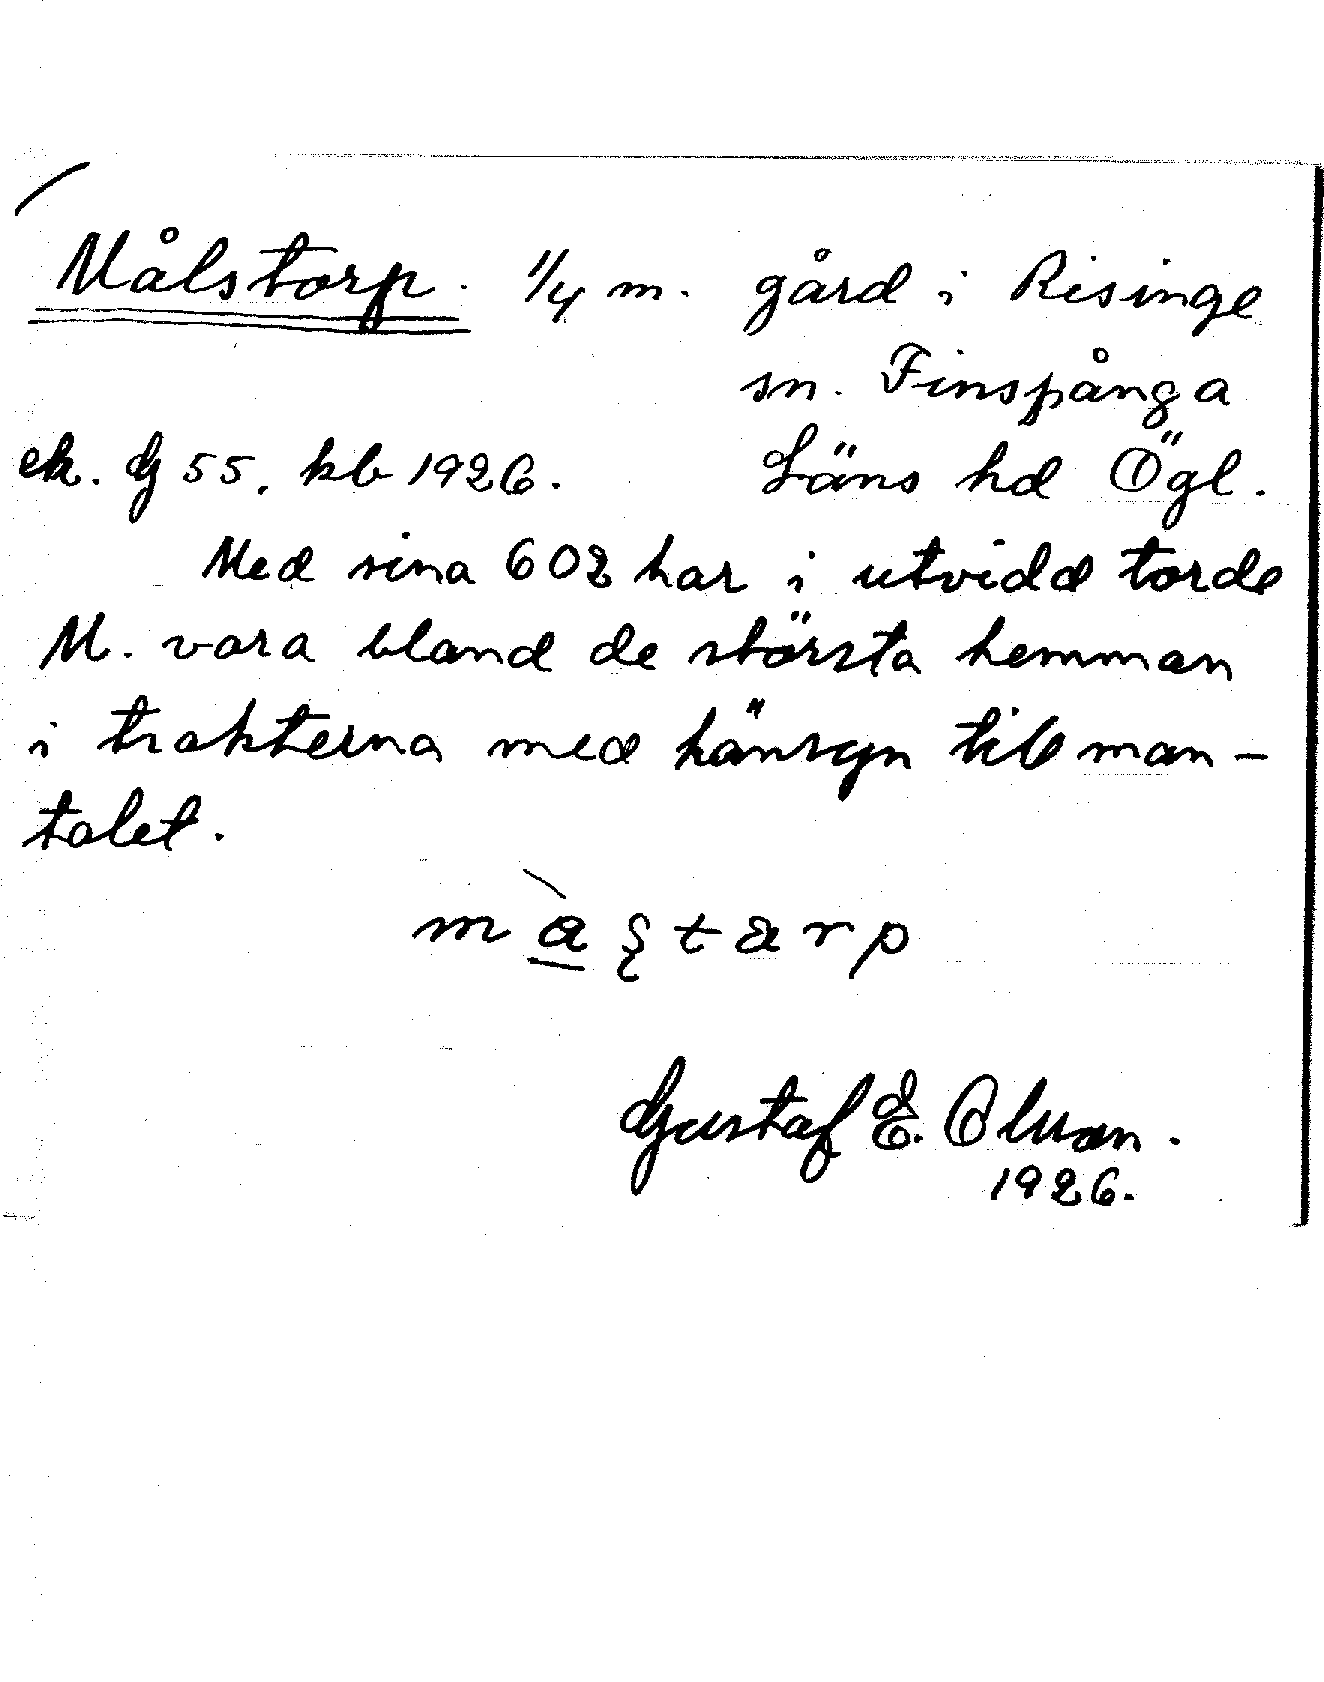 Målstorp. 1/4 m. gård i Risinge
sn. Finspånga
ek. G 55. kb 1926. Läns hd Ögl.
Med sina 602 har i utvidd torde
M. vara bland de största hemman
i trakterna med hänsyn till man-
talet.
Gustaf E. Olsson.
1926.